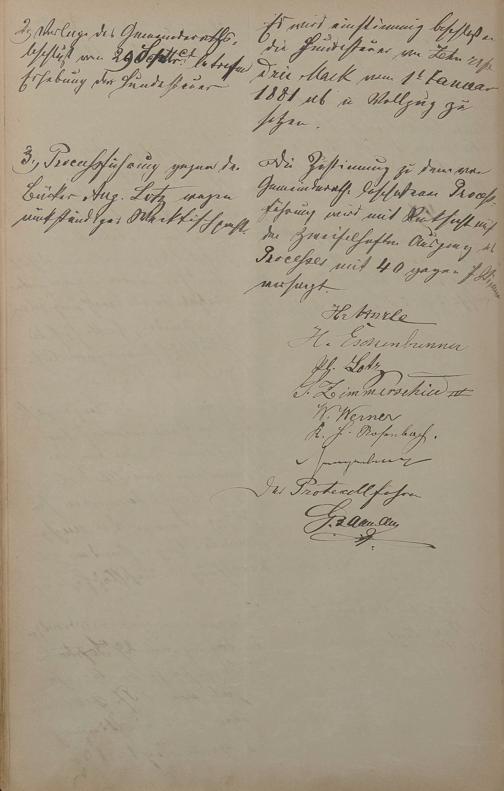 2, Vorlage des Gemeinderaths-
beschluß vom 29 Septbr. ct. betreffend
Erhebung der Hundesteuer
Es wird einstimmig beschlossen
die Hundesteuer von Zehn resp.
Drei Mark vom 1ten Januar
1881 ab in Vollzug zu
setzen.
3, Processführung gegen den
Bäcker Aug. Lotz wegen
rückständiger
Die Zustimmung zu dem vom
Gemeinderath beschlossenen Process-
führung wird mit Rücksicht auf
den zweifelhaften Ausgang des
Processes mit 40 gegen Stimmen
versagt.
H. Eschenbrenner
Ph. Lotz
Zimmerschied
W. Werner
K. F. Rosenbach.
Der Protokollführer